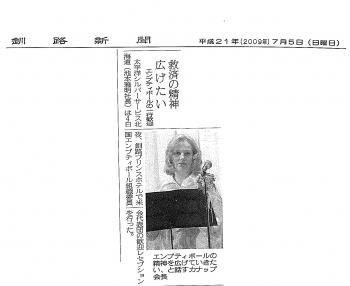 釧路新聞
平成21年(2009年)7月5日(日曜日)
救済の精神
広げたい
エンプティボールの一行歓迎
太平洋シルバーサービス北
海道(池本雅明社長)は4日
夜、釧路プリンスホテルで米
国エンプティボール組織委員
会代表団の歓迎レセプション
を行った。
エンプティボールの
精神を広げていきた
い、と話すカナップ
会長